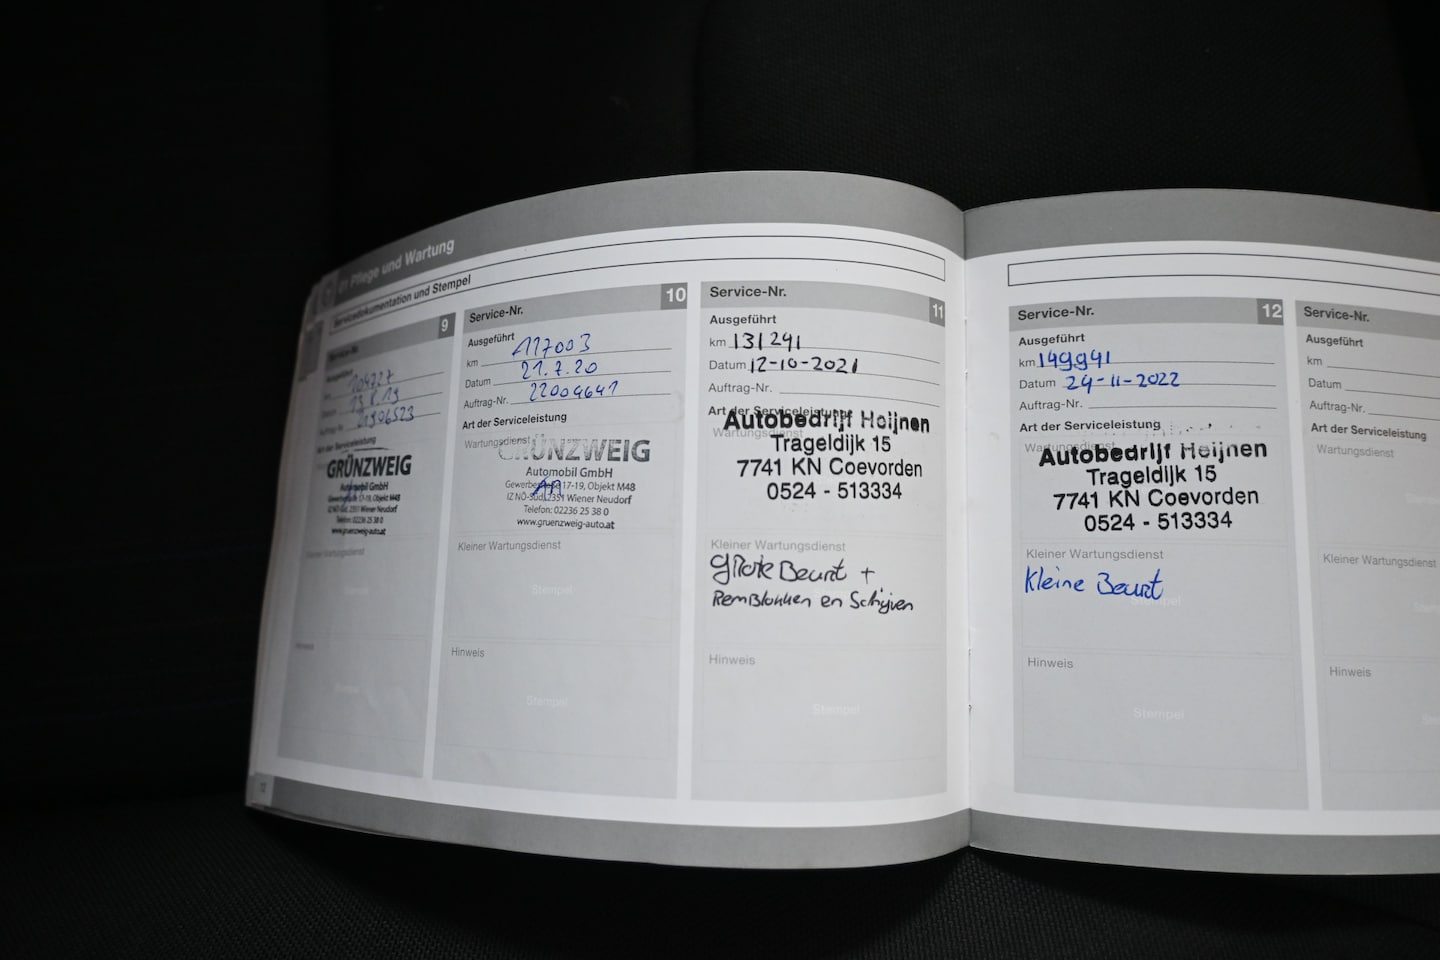 Pflege und Wartung
Servicedokumentation und Stempel
Service-Nr. 9
Ausgeführt
km 104727
Datum 13.8.19
Auftrag-Nr. 21906523
Art der Serviceleistung
GRÜNZWEIG
Automobil GmbH
Gewerbestraße 17-19, Objekt M48
IZ NÖ-Süd, 2351 Wiener Neudorf
Telefon: 02236 25 38 0
www.gruenzweig-auto.at
Kleiner Wartungsdienst
Hinweis
Stempel
12
Service-Nr. 10
Ausgeführt
km 117003
Datum 21.7.20
Auftrag-Nr. 22004641
Art der Serviceleistung
Wartungsdienst
GRÜNZWEIG
Automobil GmbH
Gewerbestraße 17-19, Objekt M48
IZ NÖ-Süd, 2351 Wiener Neudorf
Telefon: 02236 25 38 0
www.gruenzweig-auto.at
Kleiner Wartungsdienst
Stempel
Hinweis
Stempel
Service-Nr. 11
Ausgeführt
km 131291
Datum 12-10-2021
Auftrag-Nr.
Art der Serviceleistung
Wartungsdienst
Autobedrijf Heijnen
Trageldijk 15
7741 KN Coevorden
0524 - 513334
Kleiner Wartungsdienst
Grote Beurt +
Remblokken en Schijven
Hinweis
Stempel
Service-Nr. 12
Ausgeführt
km 149941
Datum 24-11-2022
Auftrag-Nr.
Art der Serviceleistung
Wartungsdienst
Autobedrijf Heijnen
Trageldijk 15
7741 KN Coevorden
0524 - 513334
Kleiner Wartungsdienst
Kleine Beurt
Stempel
Hinweis
Stempel
Service-Nr.
Ausgeführt
km
Datum
Auftrag-Nr.
Art der Serviceleistung
Wartungsdienst
Kleiner Wartungsdienst
Hinweis